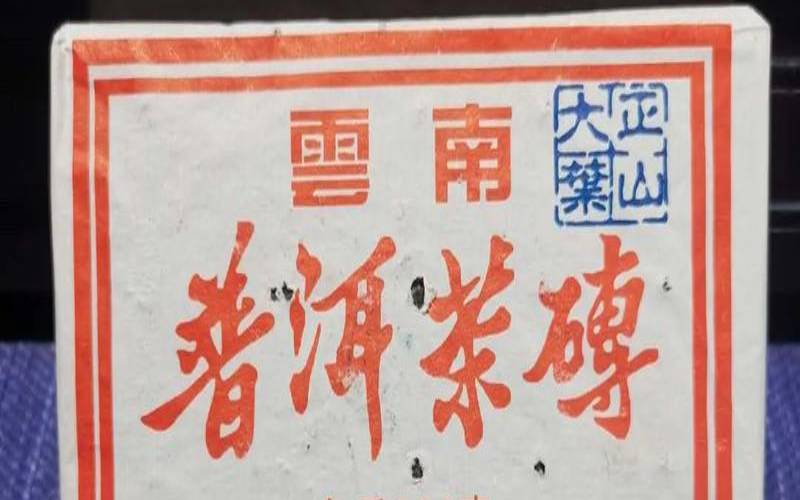 雲南
正山
大葉
普洱茶磚